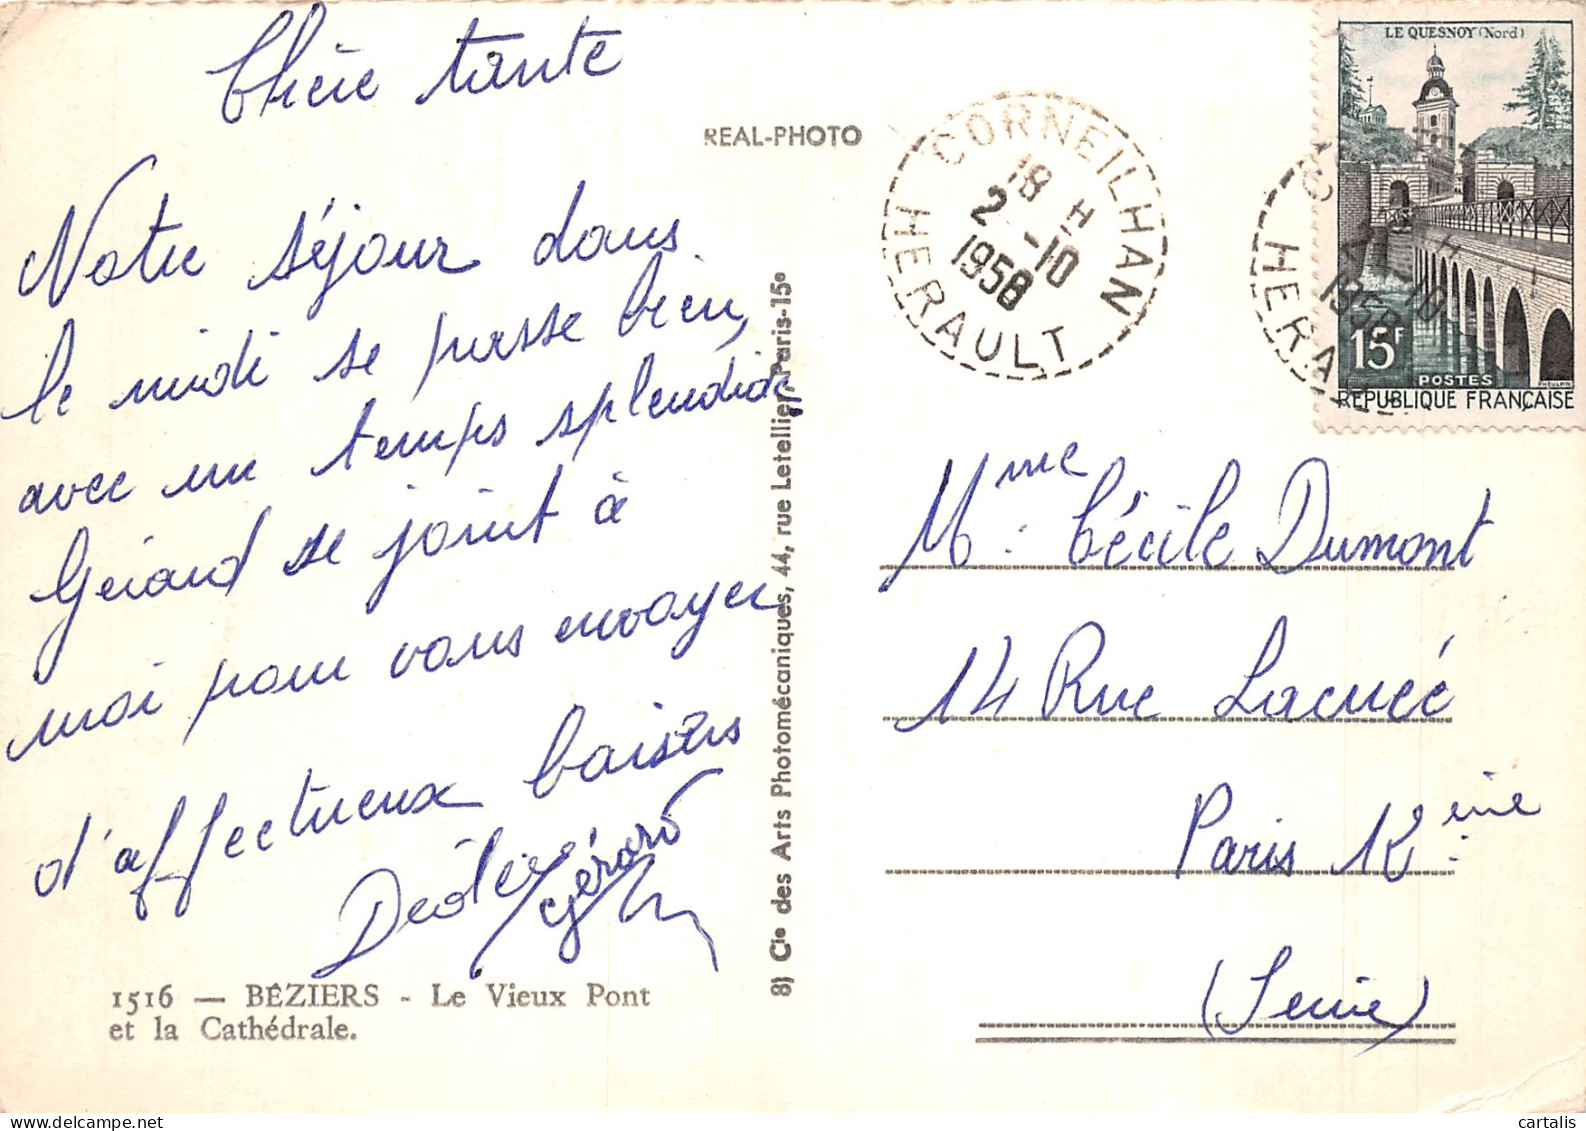 Chère tante
Notre séjour dans
le midi se passe bien,
avec un temps splendide,
Gérard se joint à
moi pour vous envoyer
d'affectueux baisers
Gérard
1516 — BÉZIERS - Le Vieux Pont
et la Cathédrale.
REAL-PHOTO
8) Cie des Arts Photomécaniques, 44, rue Letellier, Paris-15e
CORNEILHAN
18 H
2 -10
1958
HERAULT
LE QUESNOY (Nord)
15F
POSTES
REPUBLIQUE FRANÇAISE
HERA
1958
Mme Cécile Dumont
14 Rue Lacuée
Paris 12ème
(Seine)
cartalis